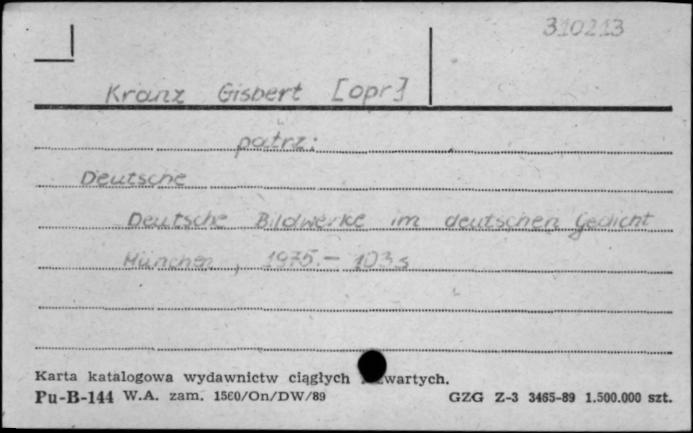 310213
Kranz Gisbert [opr]
patrz:
Deutsche
Deutsche Bildwerke im deutschen Gedicht
München, 1975.- 103 s
Karta katalogowa wydawnictw ciągłych zwartych.
Pu-B-144 W.A. zam. 1560/On/DW/89 GZG Z-3 3465-89 1.500.000 szt.